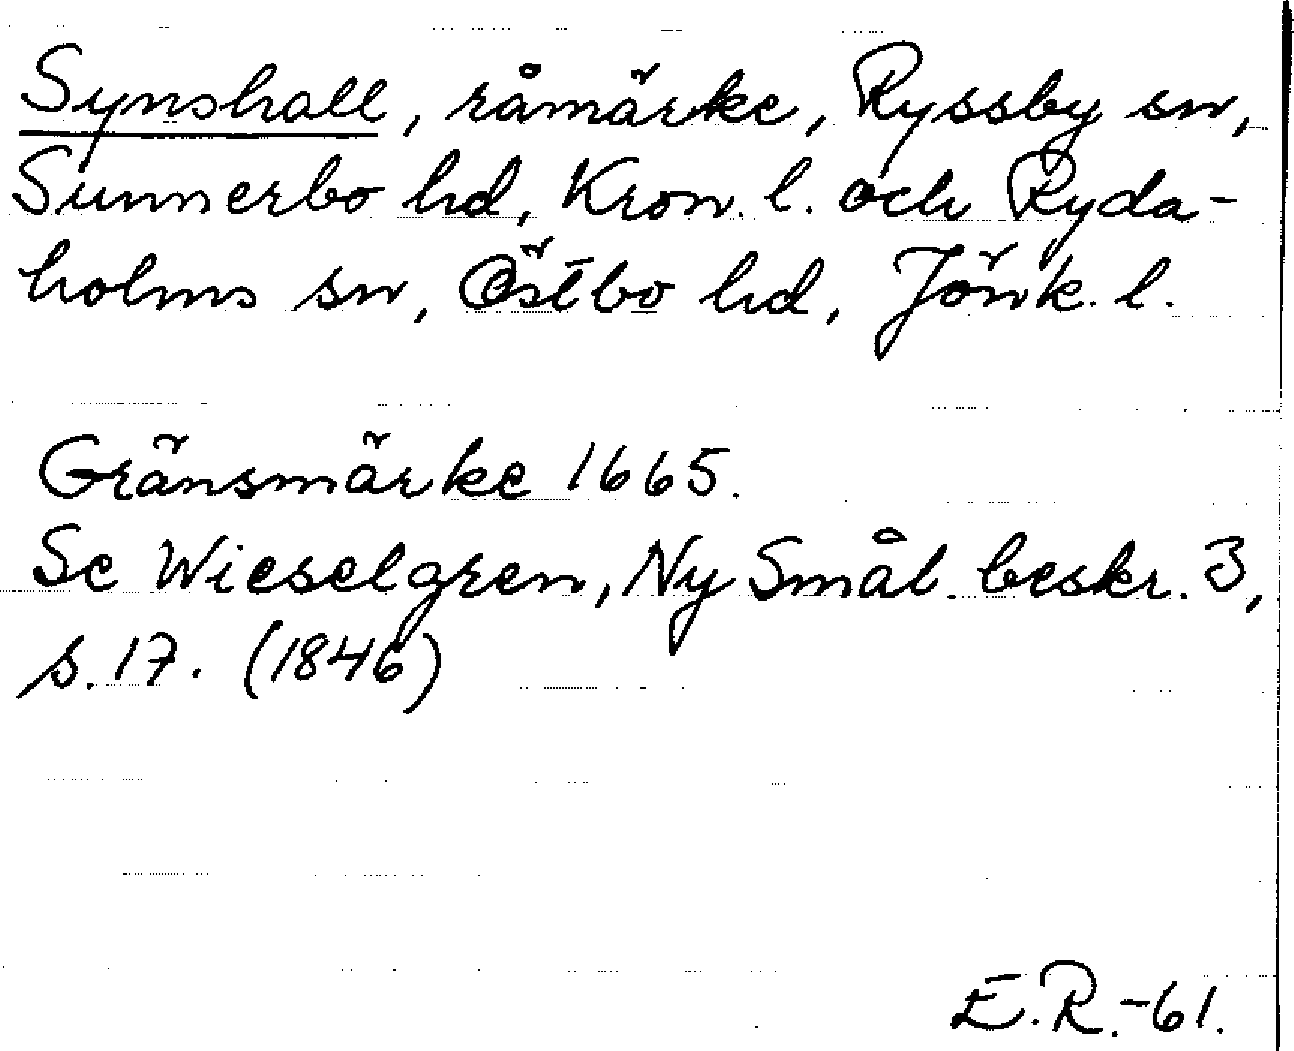 Synshall, råmärke, Ryssby sn,
Sunnerbo hd, Kron. l. och Ryda-
holms sn, Östbo hd, Jönk. l.
Gränsmärke 1665.
Se Wieselgren, Ny Smål. beskr. 3,
s. 17. (1846)
E.R.-61.